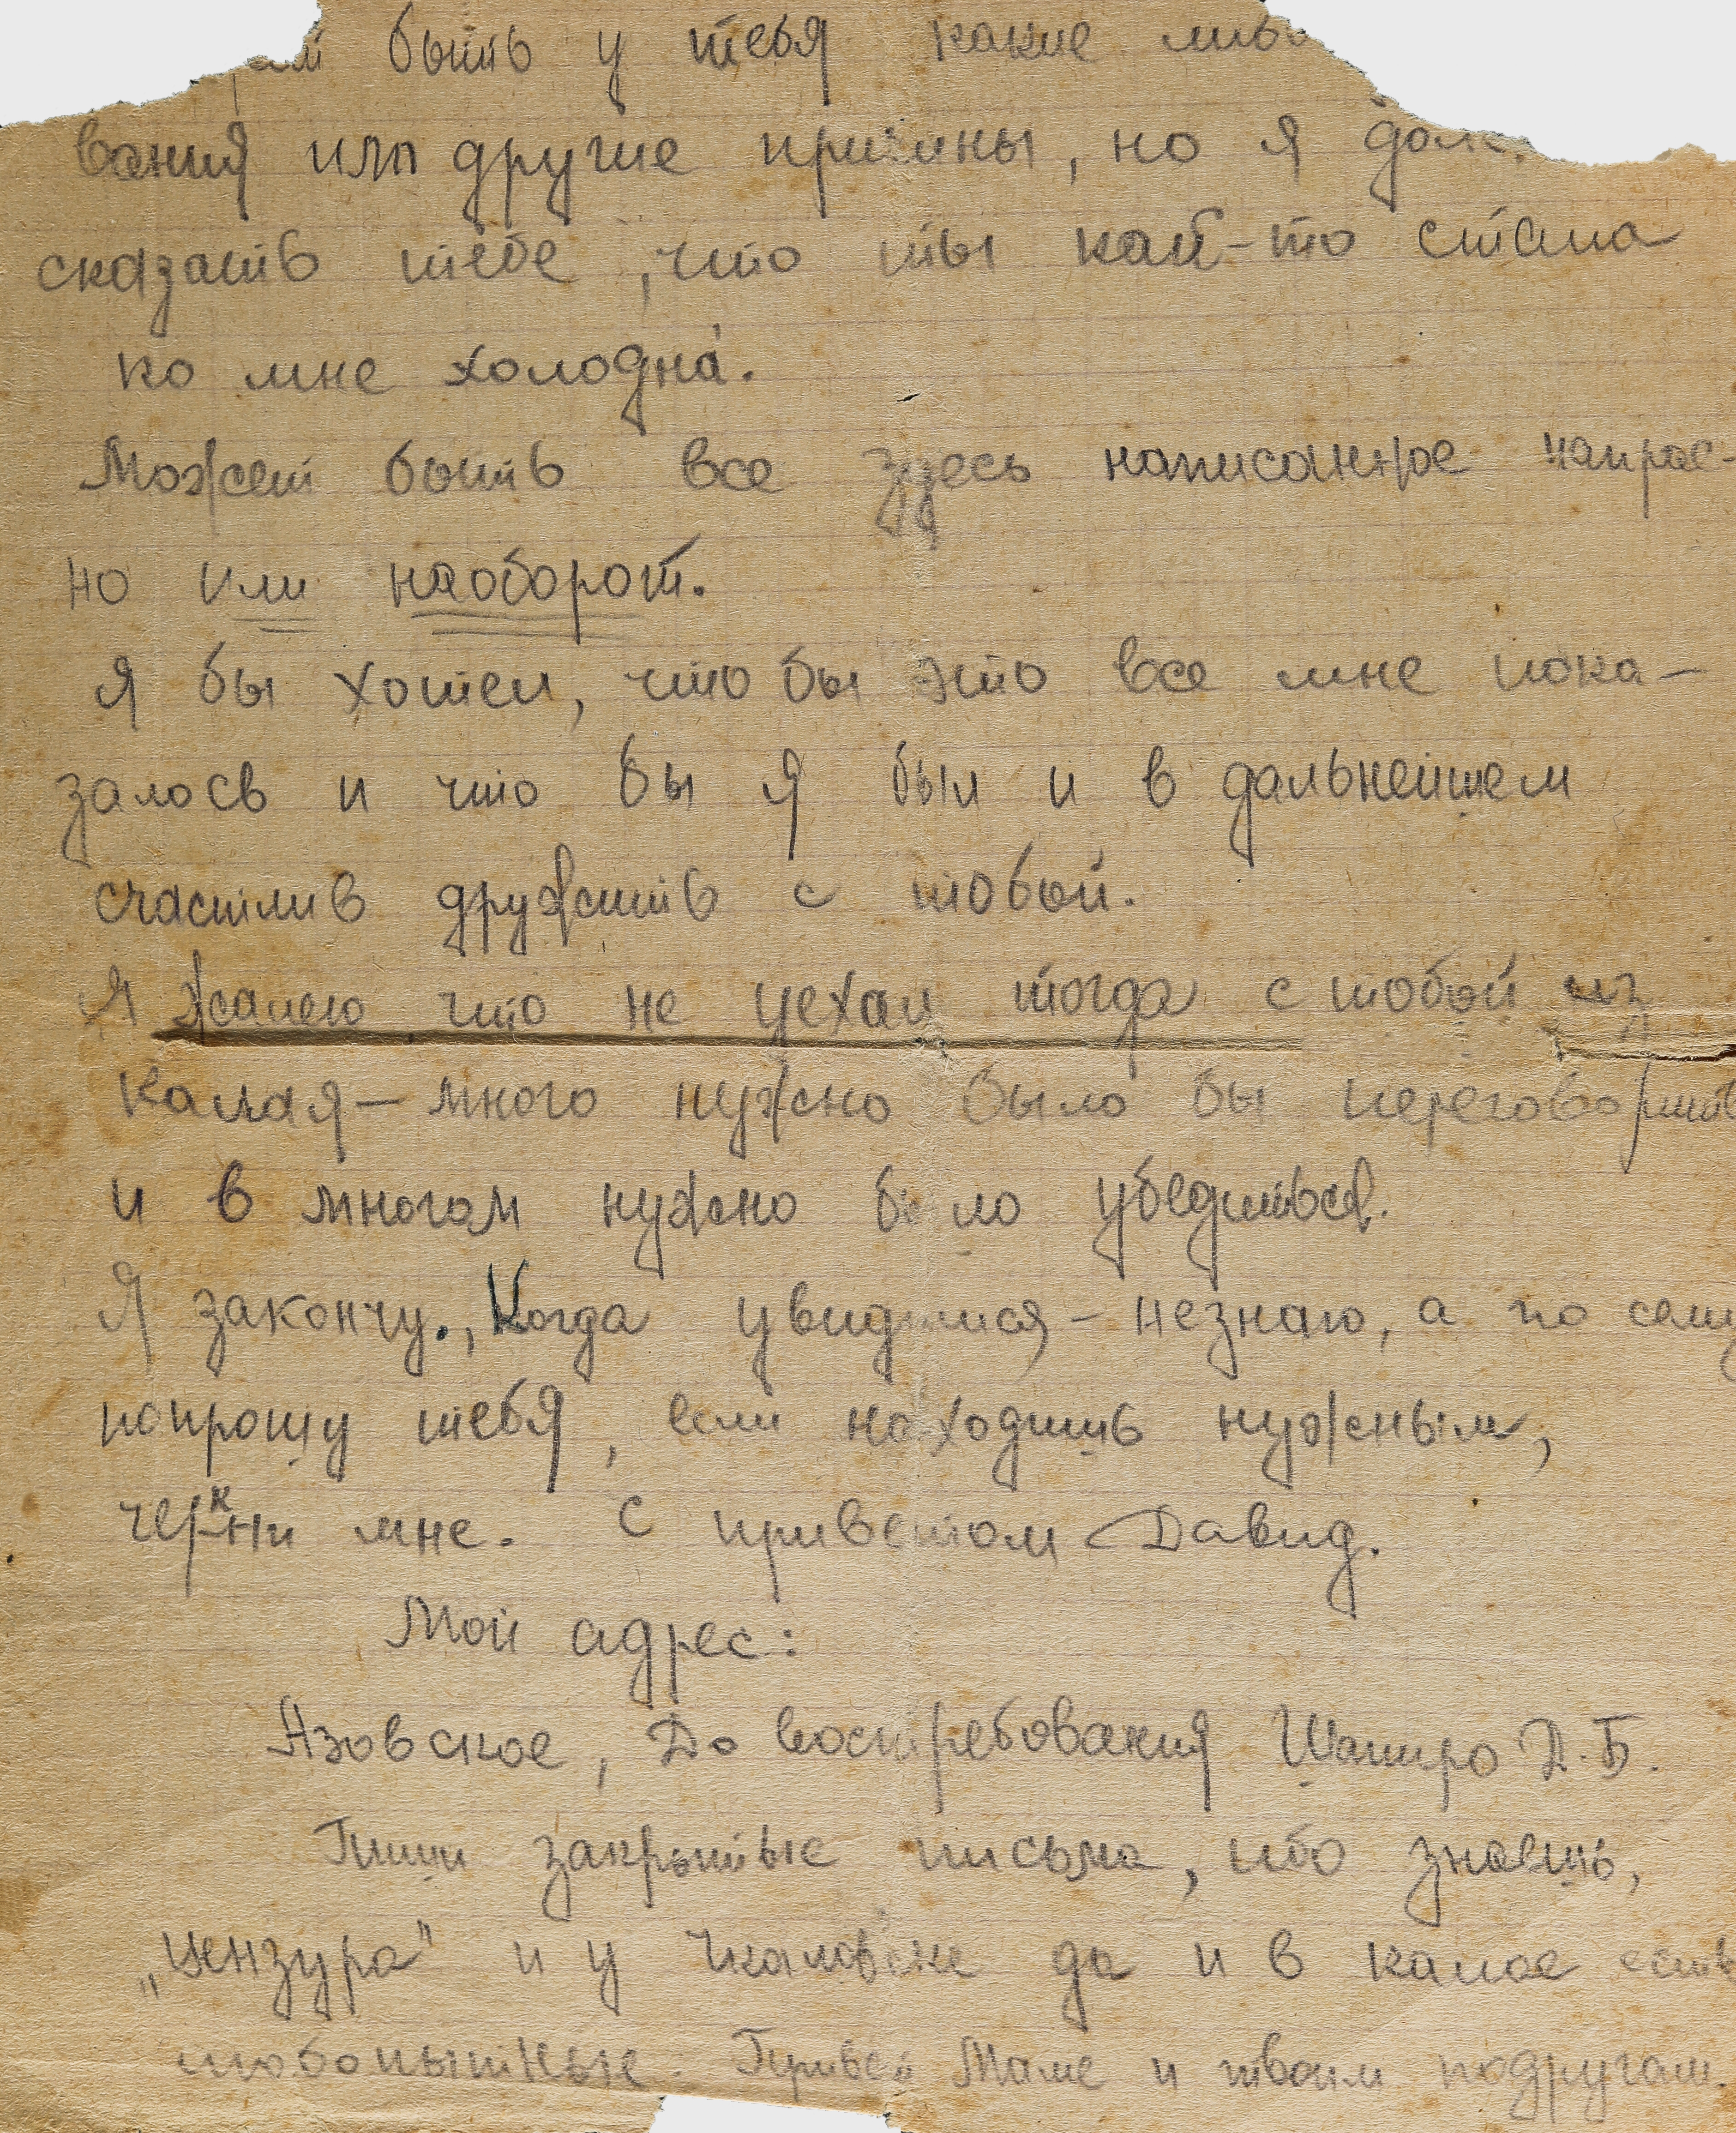 быть у тебя какие
вания или другие причины, но я
сказать тебе, что ты как-то стала
ко мне холодна.
Может быть все здесь написанное напрас-
но или наоборот.
Я бы хотел, что бы это все мне пока-
залось и что бы я был и в дальнейшем
счастлив дружить с тобой.
Я жалею что не уехал тогда с тобой из
Калая — много нужно было бы переговорить
и в многом нужно было убедиться.
Я закончу., Когда увидимся - незнаю, а по сему
попрошу тебя, если находишь нужным,
черкни мне. С приветом Давид.
Мой адрес:
Азовское, До востребования Шапиро Д.Б.
Пиши закрытые письма, ибо знаешь,
„цензура" и у Чкаловске да и в калае есть
любопытные. Привет Маме и твоим подругам.